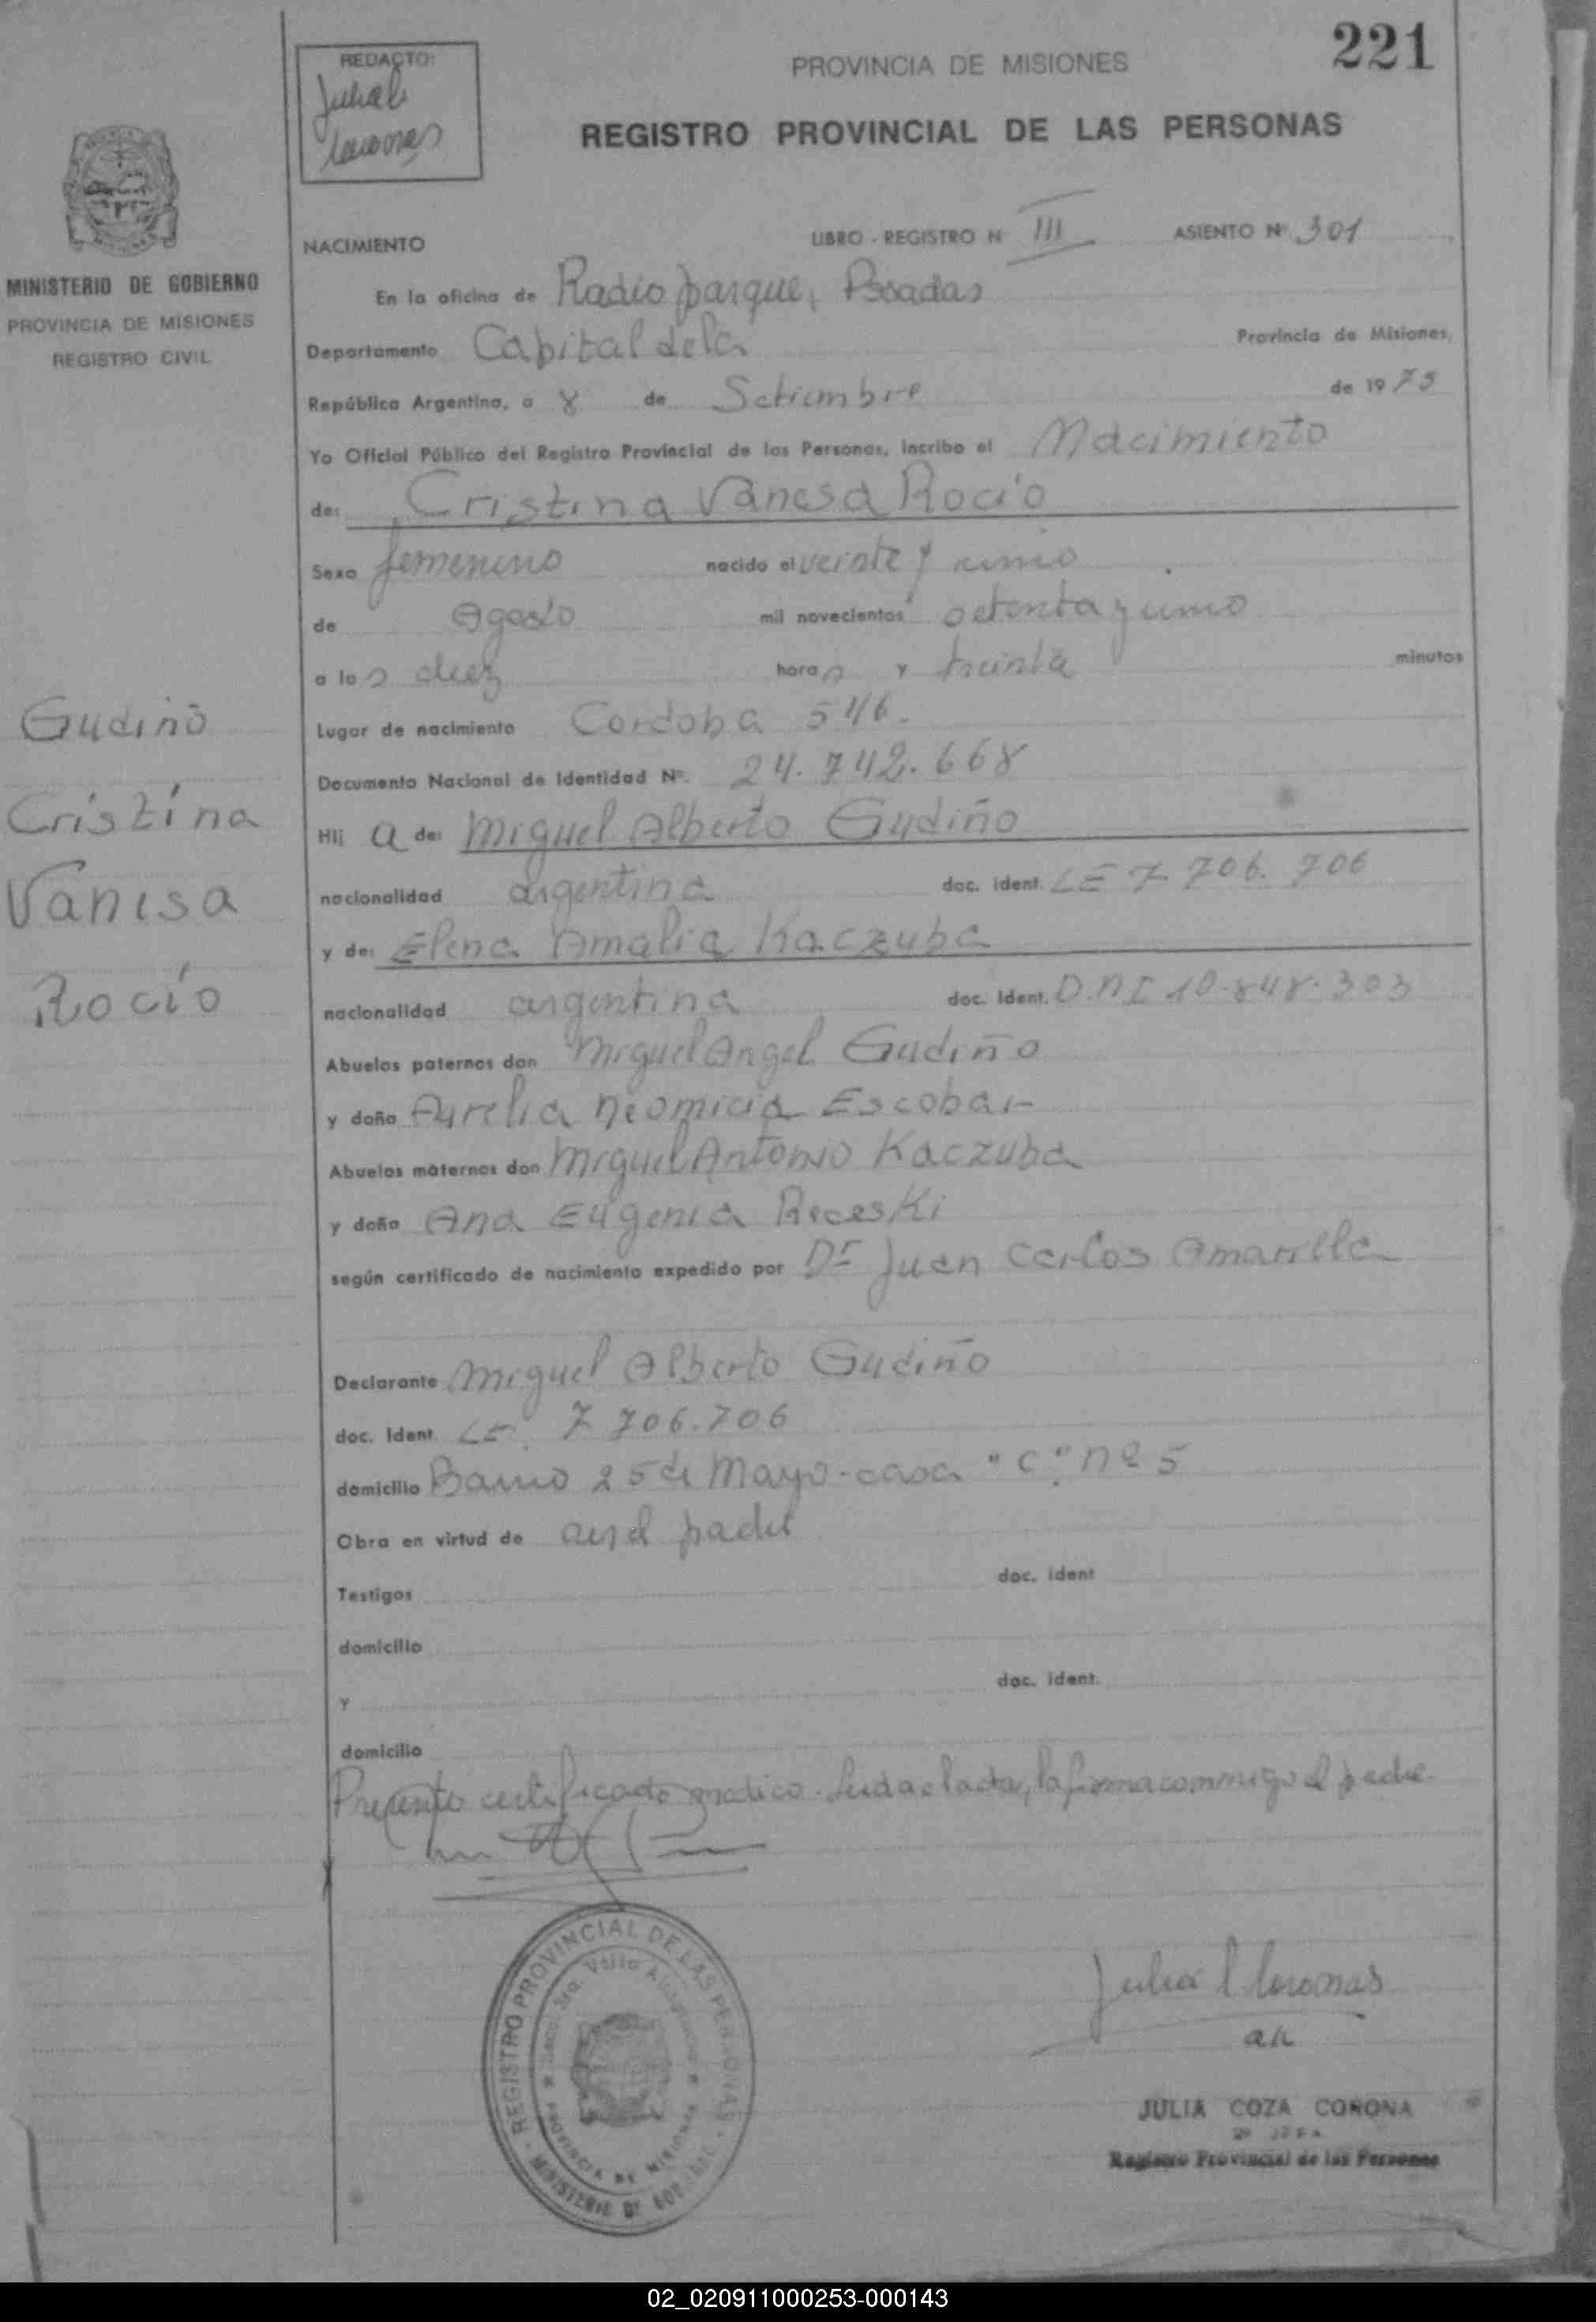 221
REDACTO:
PROVINCIA DE MISIONES
REGISTRO PROVINCIAL DE LAS PERSONAS
NACIMIENTO LIBRO - REGISTRO N III ASIENTO Nº 301
MINISTERIO DE GOBIERNO
PROVINCIA DE MISIONES
REGISTRO CIVIL
En la oficina de Radio parque, Posadas
Departamento Capital dela Provincia de Misiones,
República Argentina, a 8 de Setiembre de 1975
Yo Oficial Público del Registro Provincial de las Personas, incribo el Nacimiento
de: Cristina Vanesa Rocío
Sexo femenino nacido el veinte y
de Agosto mil novecientos
a las diez horas y treinta minutos
Lugar de nacimiento Cordoba 546.
Documento Nacional de Identidad Nº. 24.742.668
Hij a de: Miguel Alberto Gudiño
nacionalidad argentina doc. ident. LE 7.706.706
y de: Elena Amalia Kaczuba
nacionalidad argentina doc. ident. D.N.I 10.848.303
Abuelos paternos don Miguel Angel Gudiño
y doña Aurelia Neomicia Escobar
Abuelos maternos don Miguel Antonio Kaczuba
y doña Ana Eugenia Receski
según certificado de nacimiento expedido por Dr Juan Carlos Amarilla
Gudiño
Cristina
Vanesa
Rocío
Declarante Miguel Alberto Gudiño
doc. ident. LE. 7.706.706
domicilio Barrio 25 de Mayo - casa "C" nº 5
Obra en virtud de ser el padre
Testigos doc. ident
domicilio
y doc. ident.
domicilio
Presento certificado medico. Leida el acta, la firma conmigo el padre.
REGISTRO PROVINCIAL DE LAS PERSONAS
PROVINCIA DE MISIONES
MINISTERIO DE GOBIERNO
JULIA COZA CORONA
Registro Provincial de las Personas
02_020911000253-000143